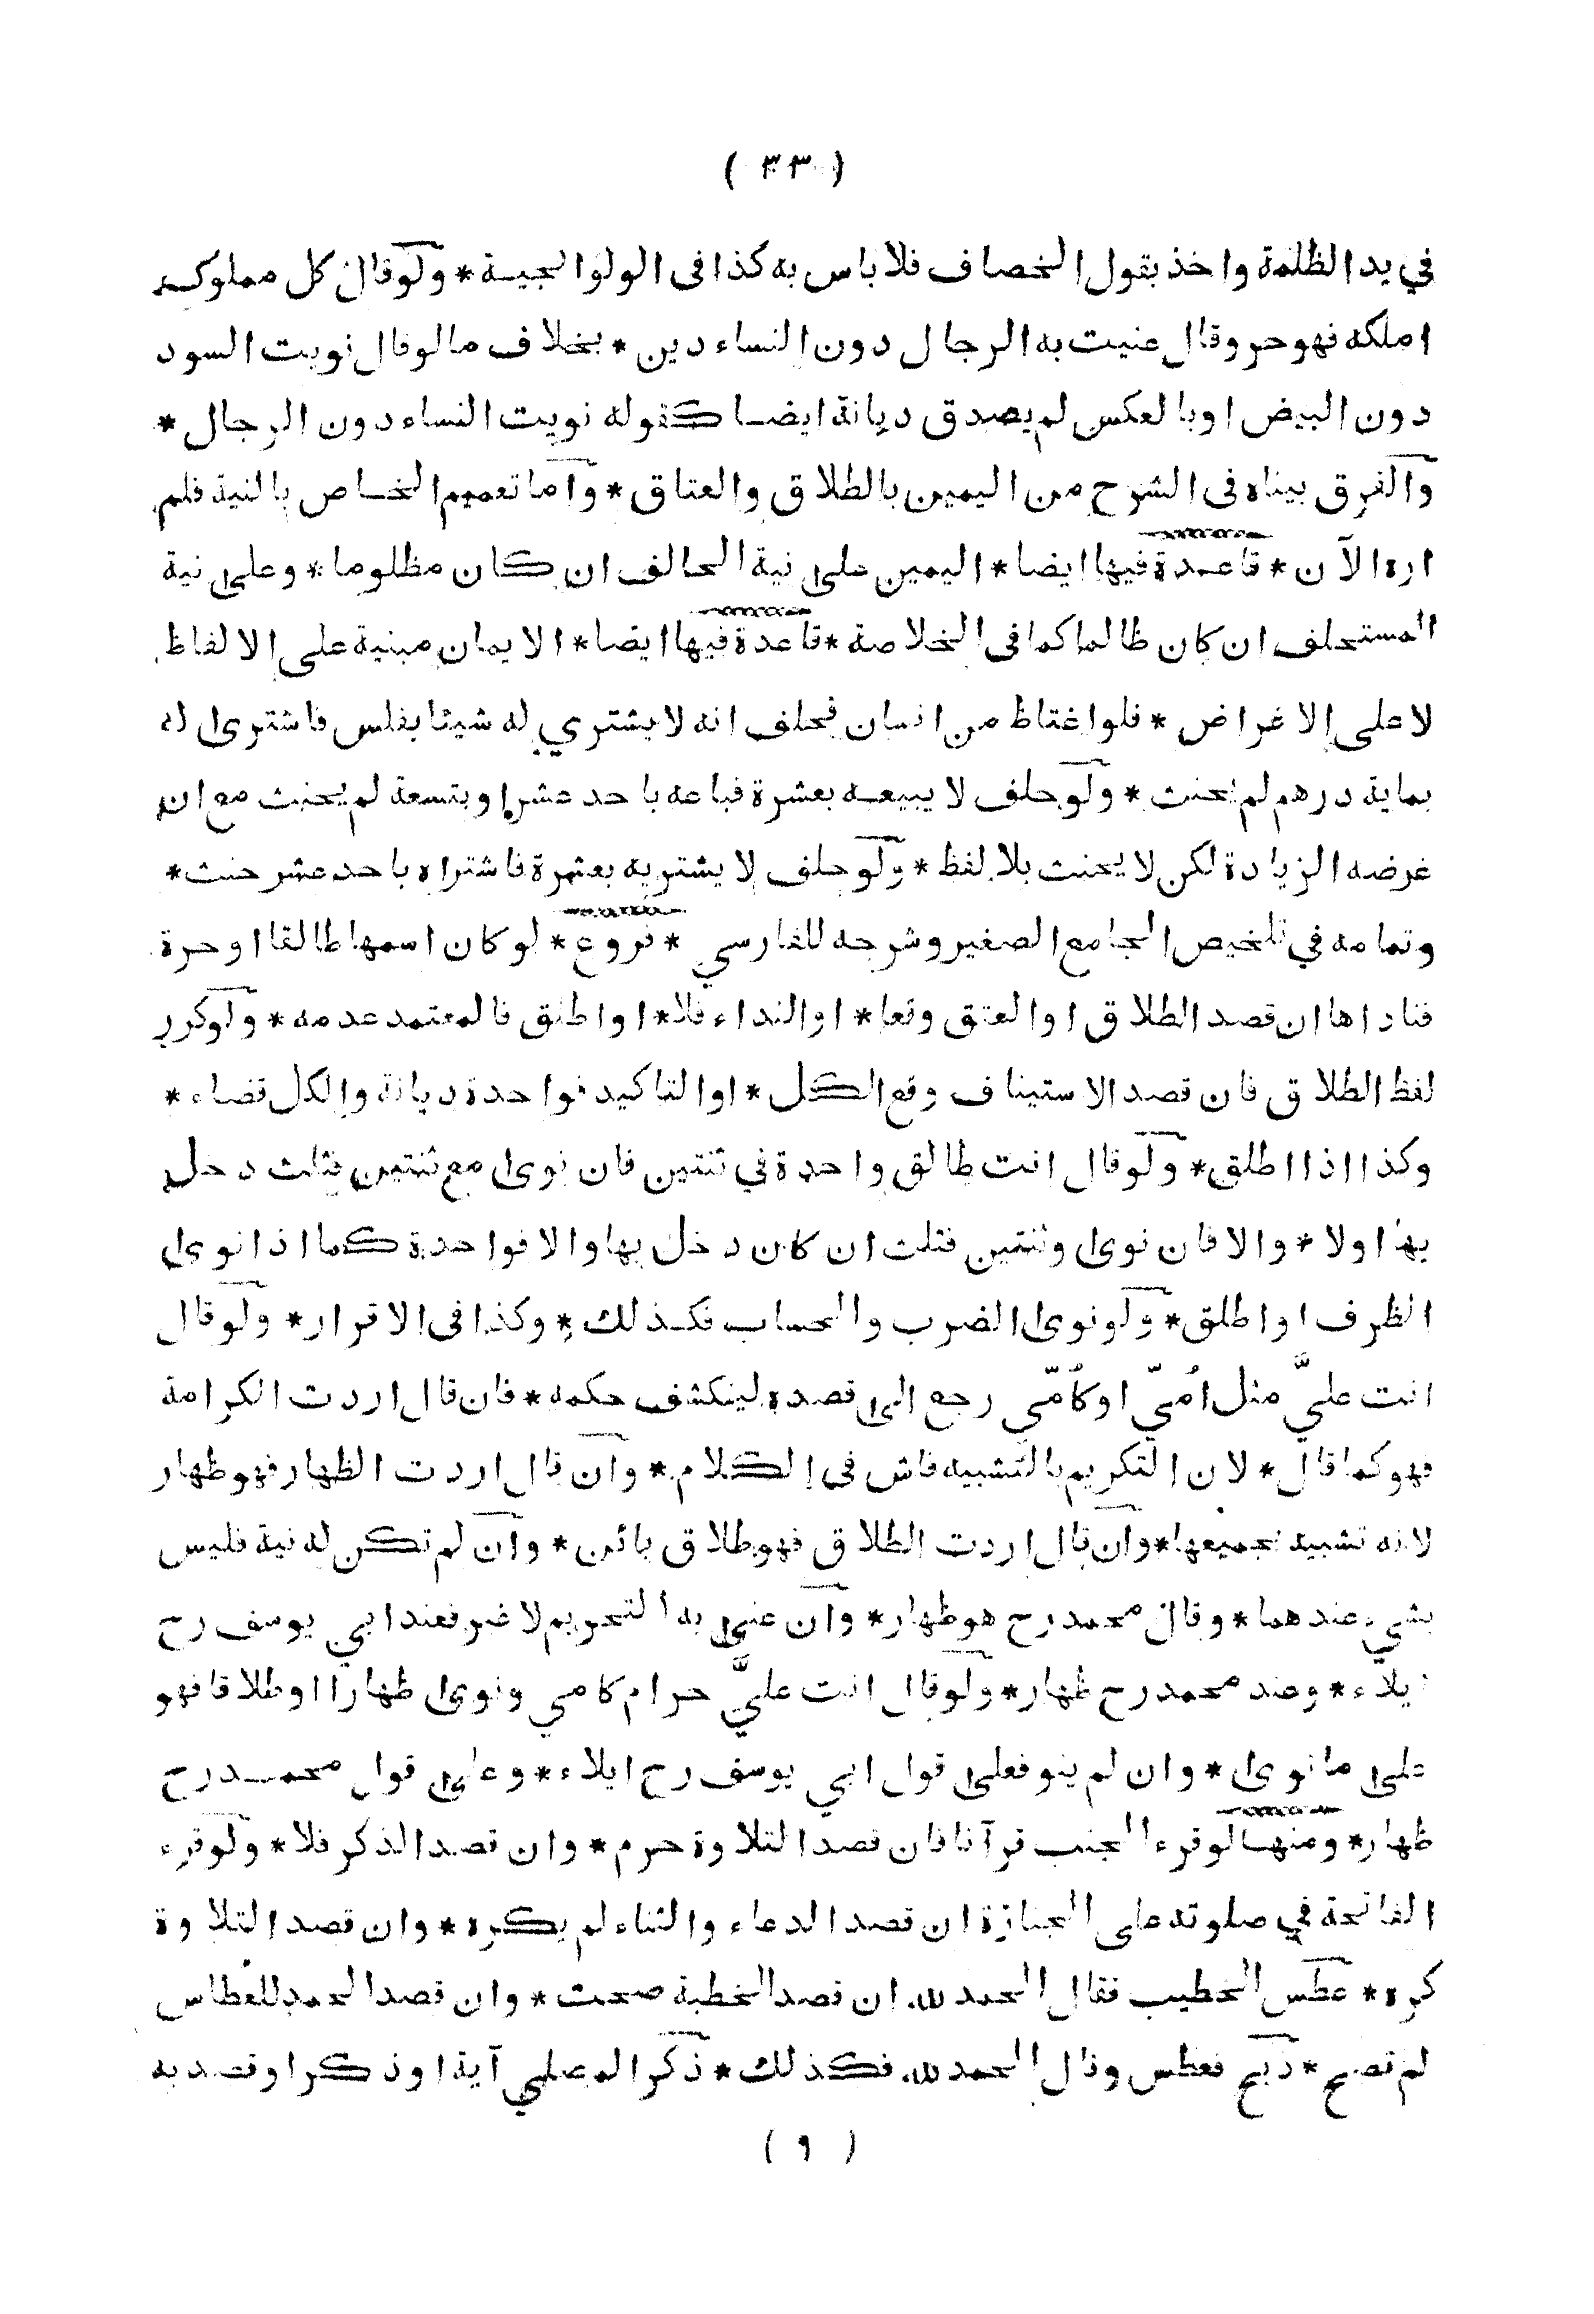 ( ٣٣ )
في يد الظلمة واخذ بقول الخصاف فلا باس به كذا فى الولوالجية * ولو قال كل مملوك
املكه فهو حر وقال عنيت به الرجال دون النساء دين * بخلاف ما لو قال نويت السود
دون البيض او بالعكس لم يصدق ديانة ايضا كقوله نويت النساء دون الرجال *
والفرق بيناه فى الشرح من اليمين بالطلاق والعتاق * واما تعميم الخاص بالنية فلم
اره الآن * قاعدة فيها ايضا * اليمين على نية الحالف ان كان مظلوما * وعلى نية
المستحلف ان كان ظالما كما فى الخلاصة * قاعدة فيها ايضا * الايمان مبنية على الالفاظ
لا على الاغراض * فلو اغتاظ من انسان فحلف انه لا يشتري له شيئا بفلس فاشترى له
بماية درهم لم يحنث * ولو حلف لا يبيعه بعشرة فباعه باحد عشر او بتسعة لم يحنث مع ان
غرضه الزيادة لكن لا يحنث بلا لفظ * ولو حلف لا يشتريه بعشرة فاشتراه باحد عشر حنث *
وتمامه في تلخيص الجامع الصغير وشرحه للفارسي * فروع * لو كان اسمها طالقا او حرة
فناداها ان قصد الطلاق او العتق وقعا * او النداء فلا * او اطلق فالمعتمد عدمه * ولو كرر
لفظ الطلاق فان قصد الاستيناف وقع الكل * او التاكيد فواحدة ديانة والكل قضاء *
وكذا اذا اطلق * ولو قال انت طالق واحدة في ثنتين فان نوى مع ثنتين فثلث دخل
بها اولا * والا فان نوى وثنتين فثلث ان كان دخل بها والا فواحدة كما اذا نوى
الظرف او اطلق * ولو نوى الضرب والحساب فكذلك * وكذا فى الاقرار * ولو قال
انت عليَّ مثل اُميّ او كاُمّي رجع الى قصده لينكشف حكمه * فان قال اردت الكرامة
فهو كما قال * لان التكريم بالتشبيه فاش فى الكلام * وان قال اردت الظهار فهو ظهار
لانه تشبيه بجميعها * وان قال اردت الطلاق فهو طلاق بائن * وان لم تكن له نية فليس
بشيء عندهما * وقال محمد رح هو ظهار * وان عنى به التحريم لا غير فعند ابي يوسف رح
ايلاء * وعند محمد رح ظهار * ولو قال انت عليَّ حرام كامي ونوى ظهارا او طلاقا فهو
على ما نوى * وان لم ينو فعلى قول ابي يوسف رح ايلاء * وعلى قول محمد رح
ظهار * ومنها لو قرء الجنب قرآنا فان قصد التلاوة حرم * وان قصد الذكر فلا * ولو قرء
الفاتحة في صلوته على الجنازة ان قصد الدعاء والثناء لم يكره * وان قصد التلاوة
كره * عطس الخطيب فقال الحمد لله ان قصد الخطبة صحت * وان قصد الحمد للعطاس
لم تصح * ذبح فعطس وقال الحمد لله فكذلك * ذكر المصلي آية او ذكرا وقصد به
( ٩ )